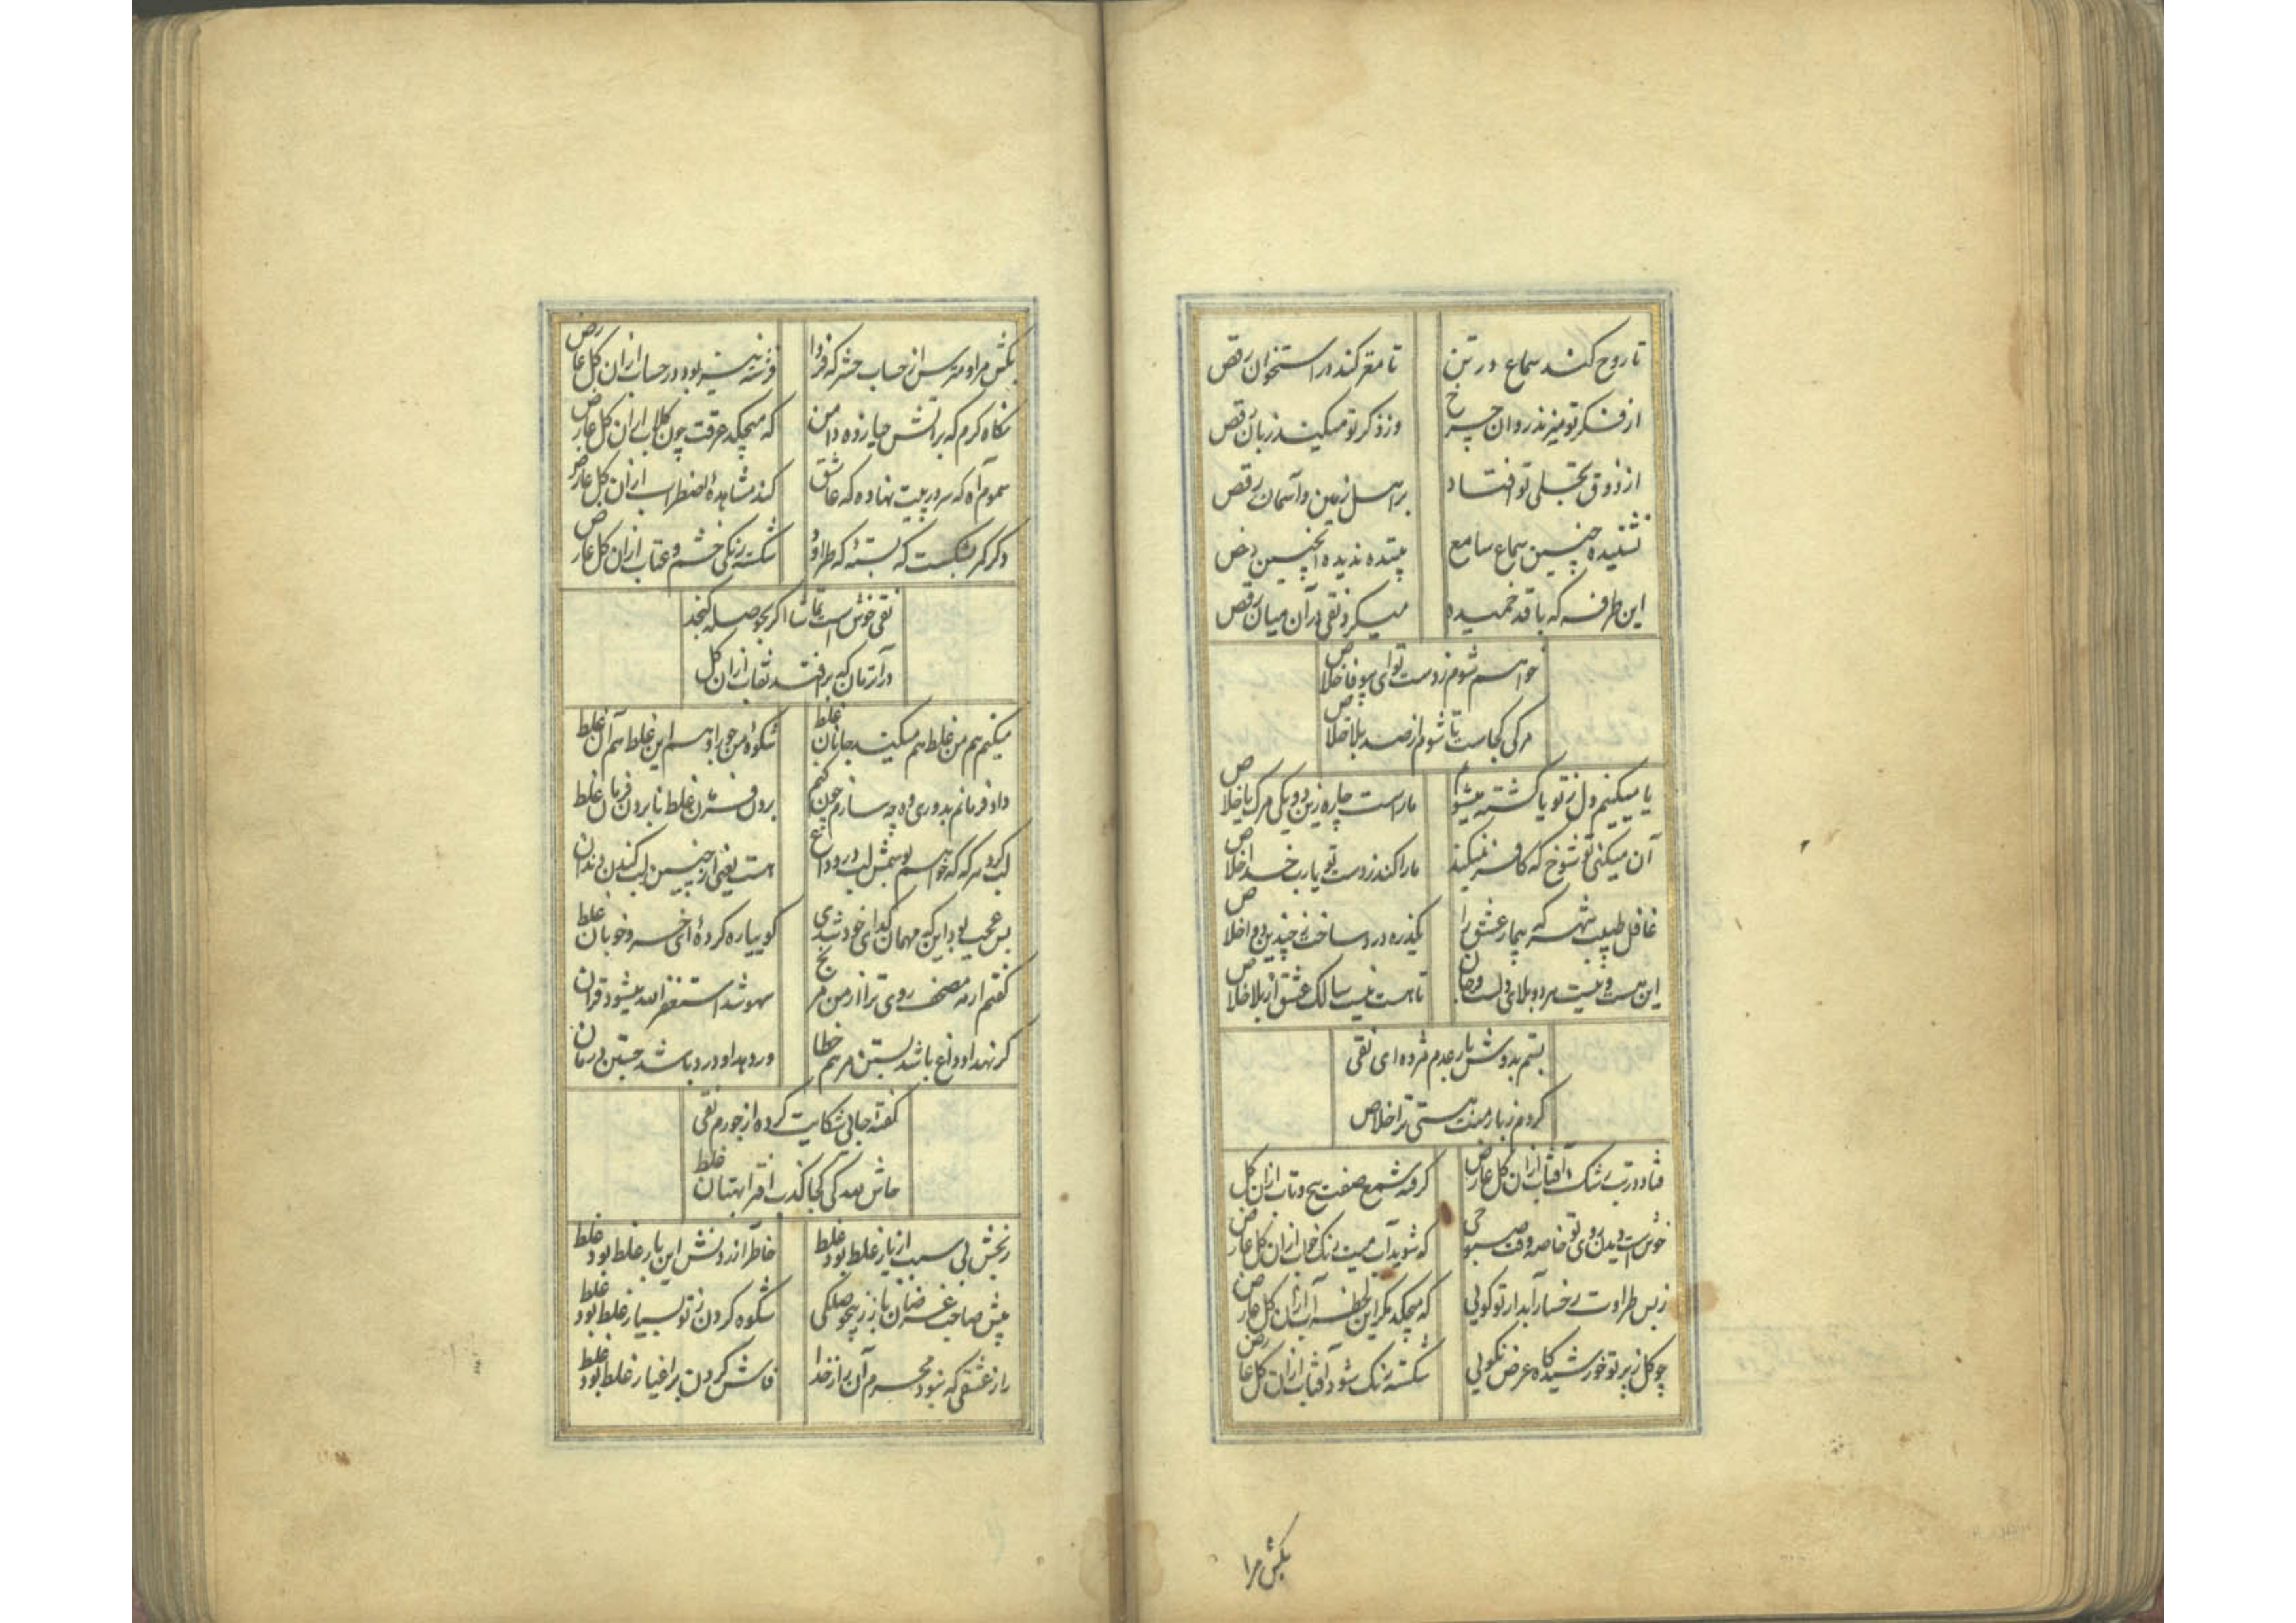 تا روح کند سماع در تن
تا مغز کند در استخوان رقص
از فکر تو میزند روان چرخ
وز ذکر تو میکند زبان رقص
از ذوق تجلی تو افتاد
بر اهل زمین و آسمان رقص
نشنیده چنین سماع سامع
بیننده ندیده اینچنین رقص
این طرفه که با قد خمیده
میکرد نقی در آن میان رقص
خواهم شوم ز دست تو ای بیوفا خلاص
مرگی کجاست تا شوم از صد بلا خلاص
یا میکنیم دل ز تو یا کشته میشوم
ماراست چاره زین دو یکی مرگ یا خلاص
آن میکنی تو شوخ که کافر نمیکند
ما را کند ز دست تو یارب خدا خلاص
غافل طبیب شهر که بیمار عشق را
این هست و نیست هر دو بلای دلست و جان
تا هست نیست سالک عشق از بلا خلاص
بستم بدوش بار عدم مژده ای نقی
کردم ز بار منت هستی ترا خلاص
فتاده در تب رشک آفتاب ازان گل عارض
گرفته شمع صفت پیچ و تاب ازان گل
خوش است دیدن روی تو خاصه وقت صبوحی
که شوید آب میت رنگ خواب ازان گل عارض
ز بس طراوت رخسار آبدار تو گویی
که میچکد مگر این لحظه آب ازان گل عارض
چو گل ز پرتو خورشید گاه عرض نکویی
شکسته رنگ شود آفتاب ازان گل عارض
بکش مرا
بکش مرا و مترس از حساب حشر که فردا
فرشته نیز بود در حساب ازان گل عارض
نگاه گرم که بر آتش حیا زده دامن
که میچکد عرقت چون گلاب ازان گل عارض
سموم آه که سر در پیت نهاده که عاشق
کند مشاهدهٔ اضطراب ازان گل عارض
دگر کمر بشکست که بستهٔ که طراود
شکسته رنگی خشم و عتاب ازان گل عارض
نقی خوش است تماشا اگر بحوصله گنجد
در آنزمان که بر افتد نقاب ازان گل
میکنم هم من غلط هم میکند جانان غلط
شکوهٔ من جور او هم این غلط هم آن غلط
داد فرمانم بدوری وه چه سازم چون کنم
بردن فرمان غلط نابردن فرمان غلط
لب گزد هر گه که خواهم بوسمش لب در وداع
هست یعنی از چنین لب کندن دندان
بس عجب بود این که مهمان گدای خود شدی
گوییا ره کردهٔ ای خسرو خوبان غلط
گفتم ار مه مصحف روی ترا از من مرنج
سهو شد استغفر الله میشود قرآن
گر نهد او داغ باشد بستن مرهم خطا
ور دهد او درد باشد جستن درمان
گفته جایی شکایت کرده از جورم نقی
حاش لله کی کجا کذب افترا بهتان غلط
رنجش بی سبب از یار غلط بود غلط
خاطر آزردنش این بار غلط بود غلط
پیش صاحب غرضان باز ز بیحوصلگی
شکوه کردن ز تو بسیار غلط بود غلط
راز عشقی که نبود محرم آن راز خدا
فاش کردن بر اغیار غلط بود غلط